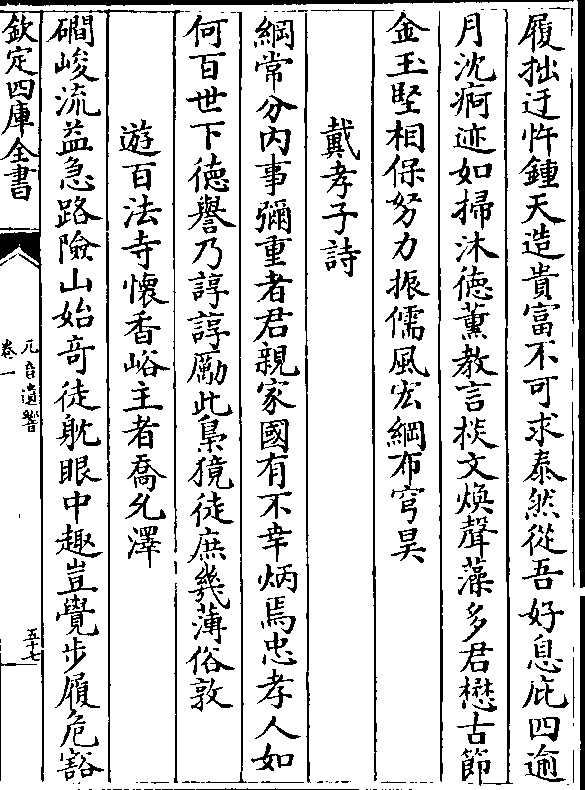 履拙迂忤鍾天造貴富不可求泰然從吾好息庇四逾
月沈痾迹如掃沐徳薰教言掞文煥聲藻多君懋古節
金玉堅相保努力振儒風宏綱布穹昊
戴孝子詩
綱常分内事彌重者君親家國有不幸炳焉忠孝人如
何百世下徳譽乃諄諄勵此梟獍徒庶幾薄俗敦
遊百法寺懷香峪主者喬允澤
磵峻流益急路險山始竒徒躭眼中趣豈覺步履危豁
欽定四庫全書
元音遺響
卷一
五十七